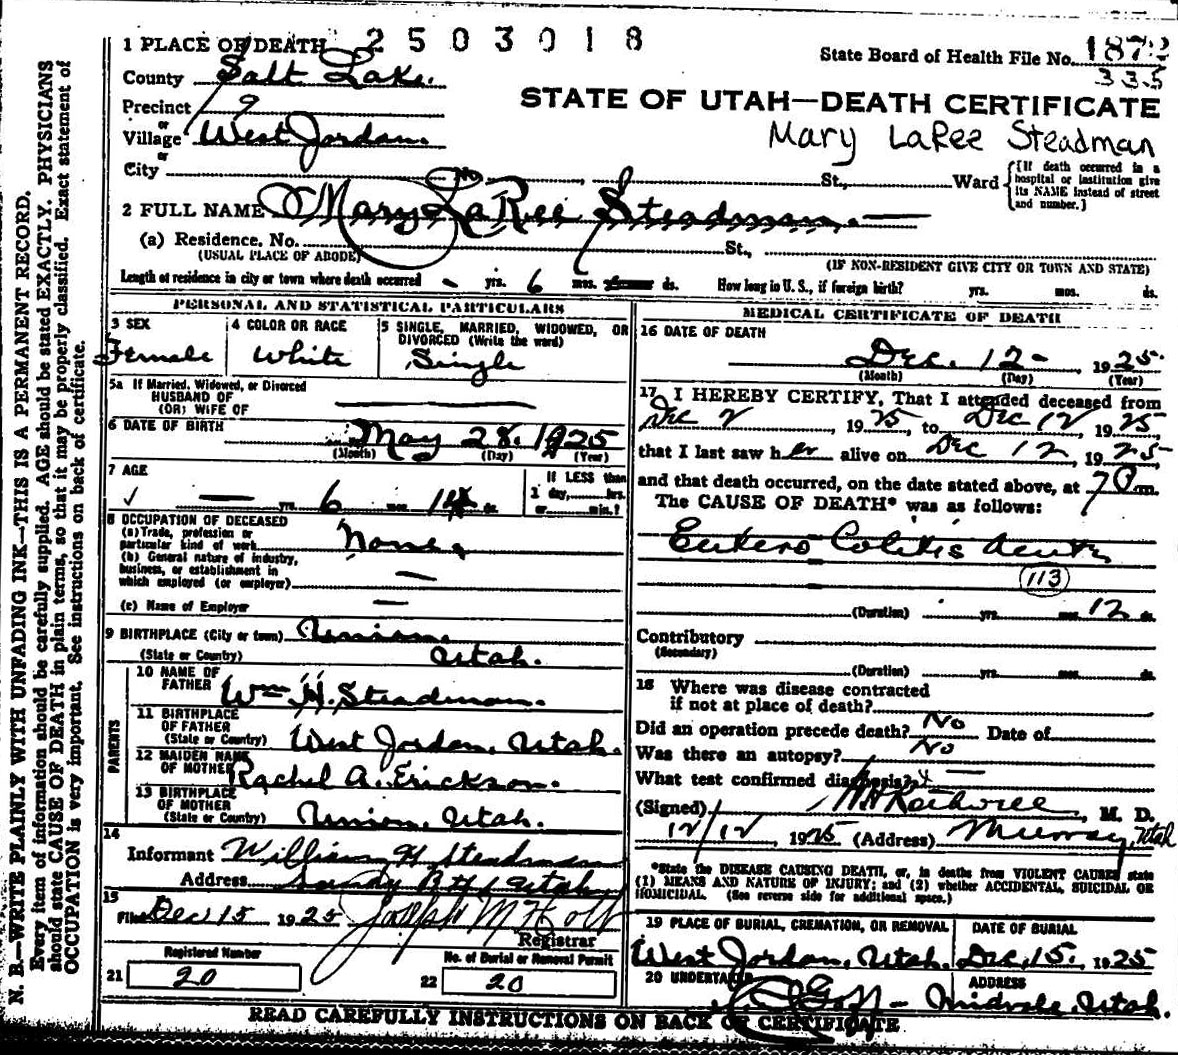 N. B.—WRITE PLAINLY WITH UNFADING INK—THIS IS A PERMANENT RECORD.
Every item of information should be carefully supplied. AGE should be stated EXACTLY. PHYSICIANS
should state CAUSE OF DEATH in plain terms, so that it may be properly classified. Exact statement of
OCCUPATION is very important. See instructions on back of certificate.
2503018
1 PLACE OF DEATH
State Board of Health File No. 1872
335
County Salt Lake.
Precinct 9
STATE OF UTAH—DEATH CERTIFICATE
or
Village West Jordan.
Mary LaRee Steadman
or
City
No
St.,
Ward
{If death occurred in a hospital or institution give its NAME instead of street and number.}
2 FULL NAME Mary LaRee Steadman.
(a) Residence. No. St.,
(USUAL PLACE OF ABODE)
(IF NON-RESIDENT GIVE CITY OR TOWN AND STATE)
Length of residence in city or town where death occurred - yrs. 6 mos. ds. How long in U. S., if foreign birth? yrs. mos. ds.
PERSONAL AND STATISTICAL PARTICULARS
3 SEX
Female
4 COLOR OR RACE
White
5 SINGLE, MARRIED, WIDOWED, OR
DIVORCED (Write the word)
Single
5a If Married, Widowed, or Divorced
HUSBAND OF
(OR) WIFE OF
6 DATE OF BIRTH May 28. 1925
(Month) (Day) (Year)
7 AGE
— yrs. 6 mos. 14 ds.
If LESS than
1 day, hrs.
or min.?
8 OCCUPATION OF DECEASED
(a) Trade, profession or
particular kind of work None.
(b) General nature of industry,
business, or establishment in
which employed (or employer) —
(c) Name of Employer —
9 BIRTHPLACE (City or town) Union.
(State or Country) Utah.
PARENTS
10 NAME OF
FATHER Wm H. Steadman.
11 BIRTHPLACE
OF FATHER
(State or Country) West Jordan, Utah.
12 MAIDEN NAME
OF MOTHER Rachel A. Erickson.
13 BIRTHPLACE
OF MOTHER
(State or Country) Union, Utah.
14
Informant William H Steadman
Address Sandy Utah
15
Filed Dec 15 1925 Joseph M Holt
Registrar
Registered Number
21 20
No. of Burial or Removal Permit
22 20
MEDICAL CERTIFICATE OF DEATH
16 DATE OF DEATH
Dec. 12- 1925.
(Month) (Day) (Year)
17 I HEREBY CERTIFY, That I attended deceased from
Dec 2, 1925, to Dec 12, 1925,
that I last saw her alive on Dec 12, 1925
and that death occurred, on the date stated above, at 7 P m.
The CAUSE OF DEATH* was as follows:
Entero Colitis acute
113
(Duration) yrs. mos. 12 ds.
Contributory
(Secondary)
(Duration) yrs. mos. ds.
18 Where was disease contracted
if not at place of death?
Did an operation precede death? No Date of
Was there an autopsy? No
What test confirmed diagnosis? —
(Signed) M. D.
12/12 1925 (Address) Murray, Utah
*State the DISEASE CAUSING DEATH, or, in deaths from VIOLENT CAUSES state
(1) MEANS AND NATURE OF INJURY; and (2) whether ACCIDENTAL, SUICIDAL OR
HOMICIDAL. (See reverse side for additional space.)
19 PLACE OF BURIAL, CREMATION, OR REMOVAL
West Jordan, Utah.
DATE OF BURIAL
Dec. 15. 1925
20 UNDERTAKER
Goff -
ADDRESS
Midvale, Utah.
READ CAREFULLY INSTRUCTIONS ON BACK OF CERTIFICATE